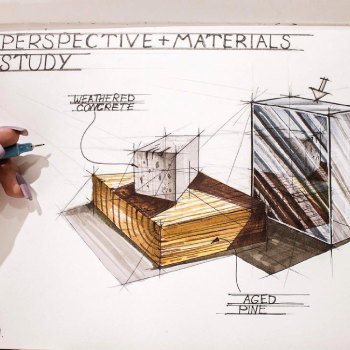 PERSPECTIVE + MATERIALS
STUDY
WEATHERED
CONCRETE
AGED
PINE